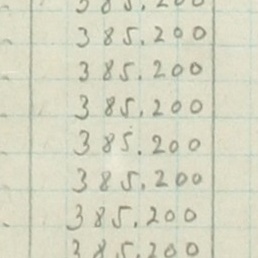 385.200
385.200
385.200
385.200
385.200
385.200
385.200
385.200